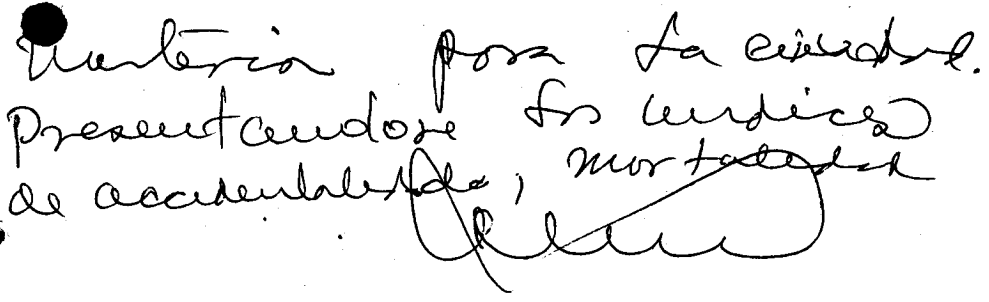 materia para la ciudad.
Presentandose los indices
de accidentalidad, mortalidad